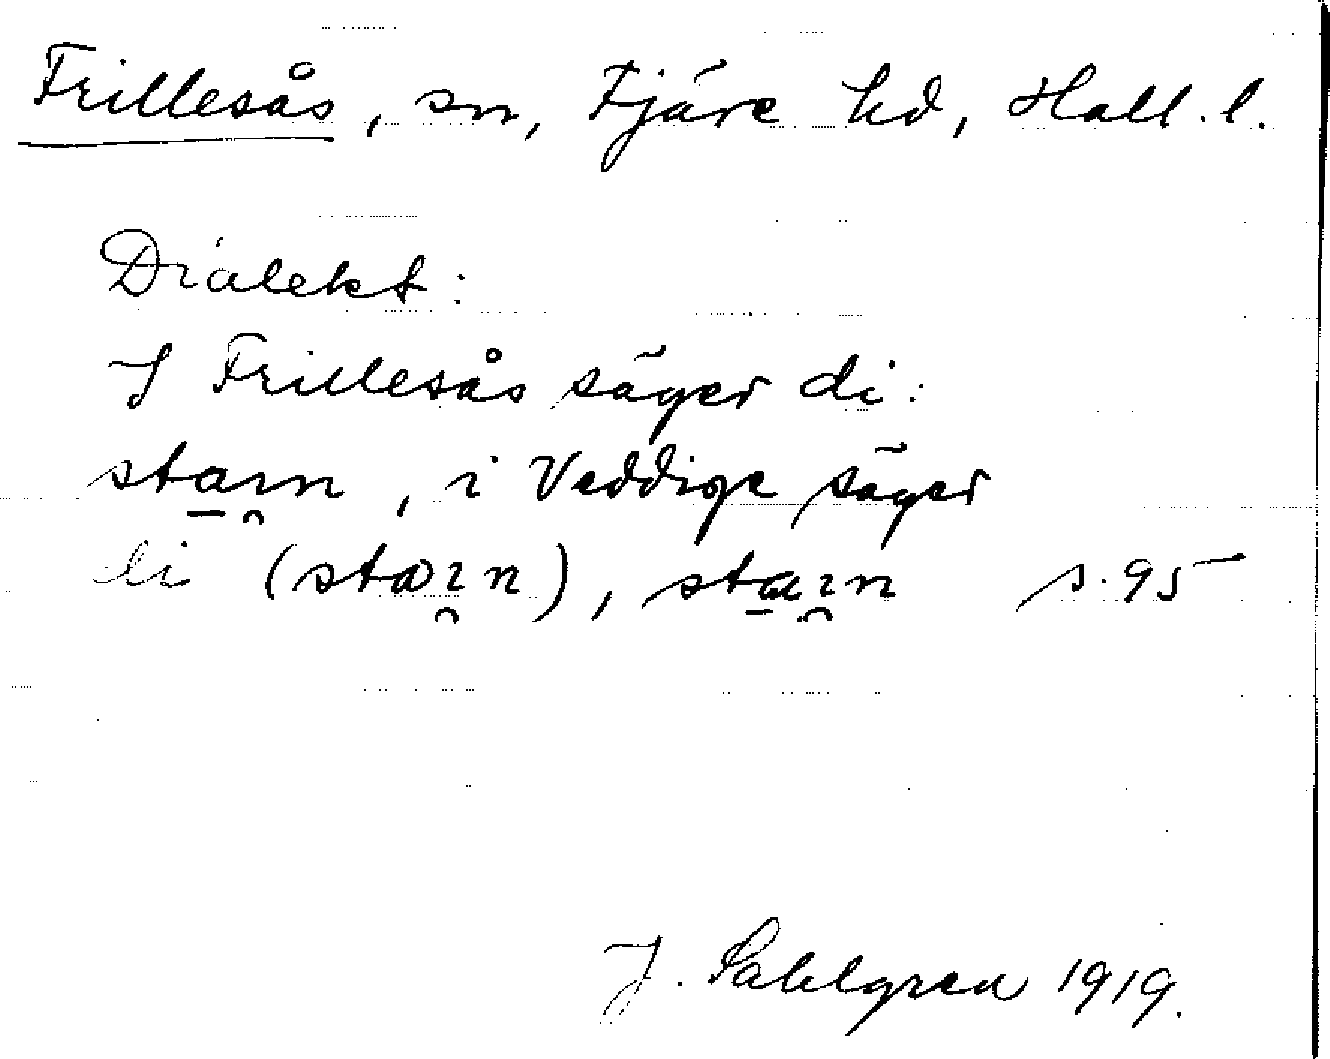 Frillesås, sn, Fjäre hd, Hall. l.
Dialekt:
I Frillesås säger di:
sta̠ɹ̯n, i Veddige säger
di (staɹ̯n), sta̠ɹ̯n s. 95
J. Sahlgren 1919.